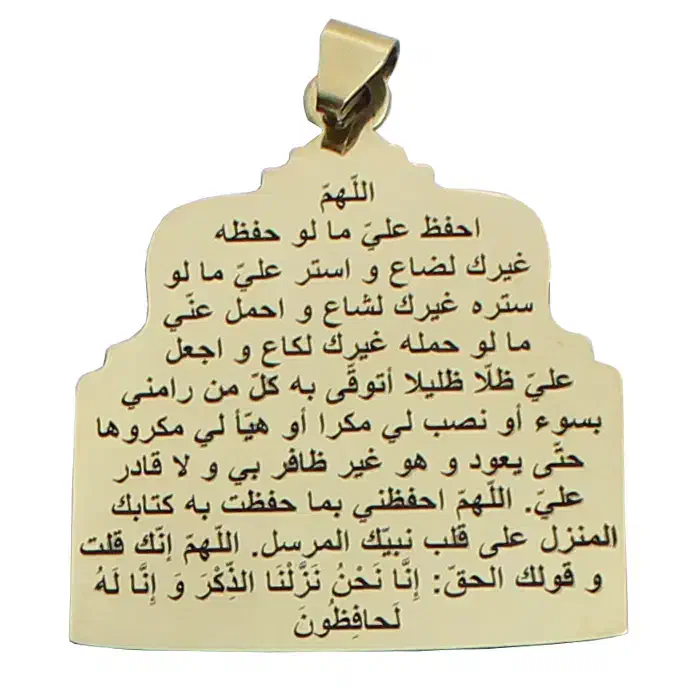 اللّهمّ
احفظ عليّ ما لو حفظه
غيرك لضاع و استر عليّ ما لو
ستره غيرك لشاع و احمل عنّي
ما لو حمله غيرك لكاع و اجعل
عليّ ظلّا ظليلا أتوقّى به كلّ من رامني
بسوء أو نصب لي مكرا أو هيّأ لي مكروها
حتّى يعود و هو غير ظافر بي و لا قادر
عليّ. اللّهمّ احفظني بما حفظت به كتابك
المنزل على قلب نبيّك المرسل. اللّهمّ إنّك قلت
و قولك الحقّ: إِنَّا نَحْنُ نَزَّلْنَا الذِّكْرَ وَ إِنَّا لَهُ
لَحافِظُونَ